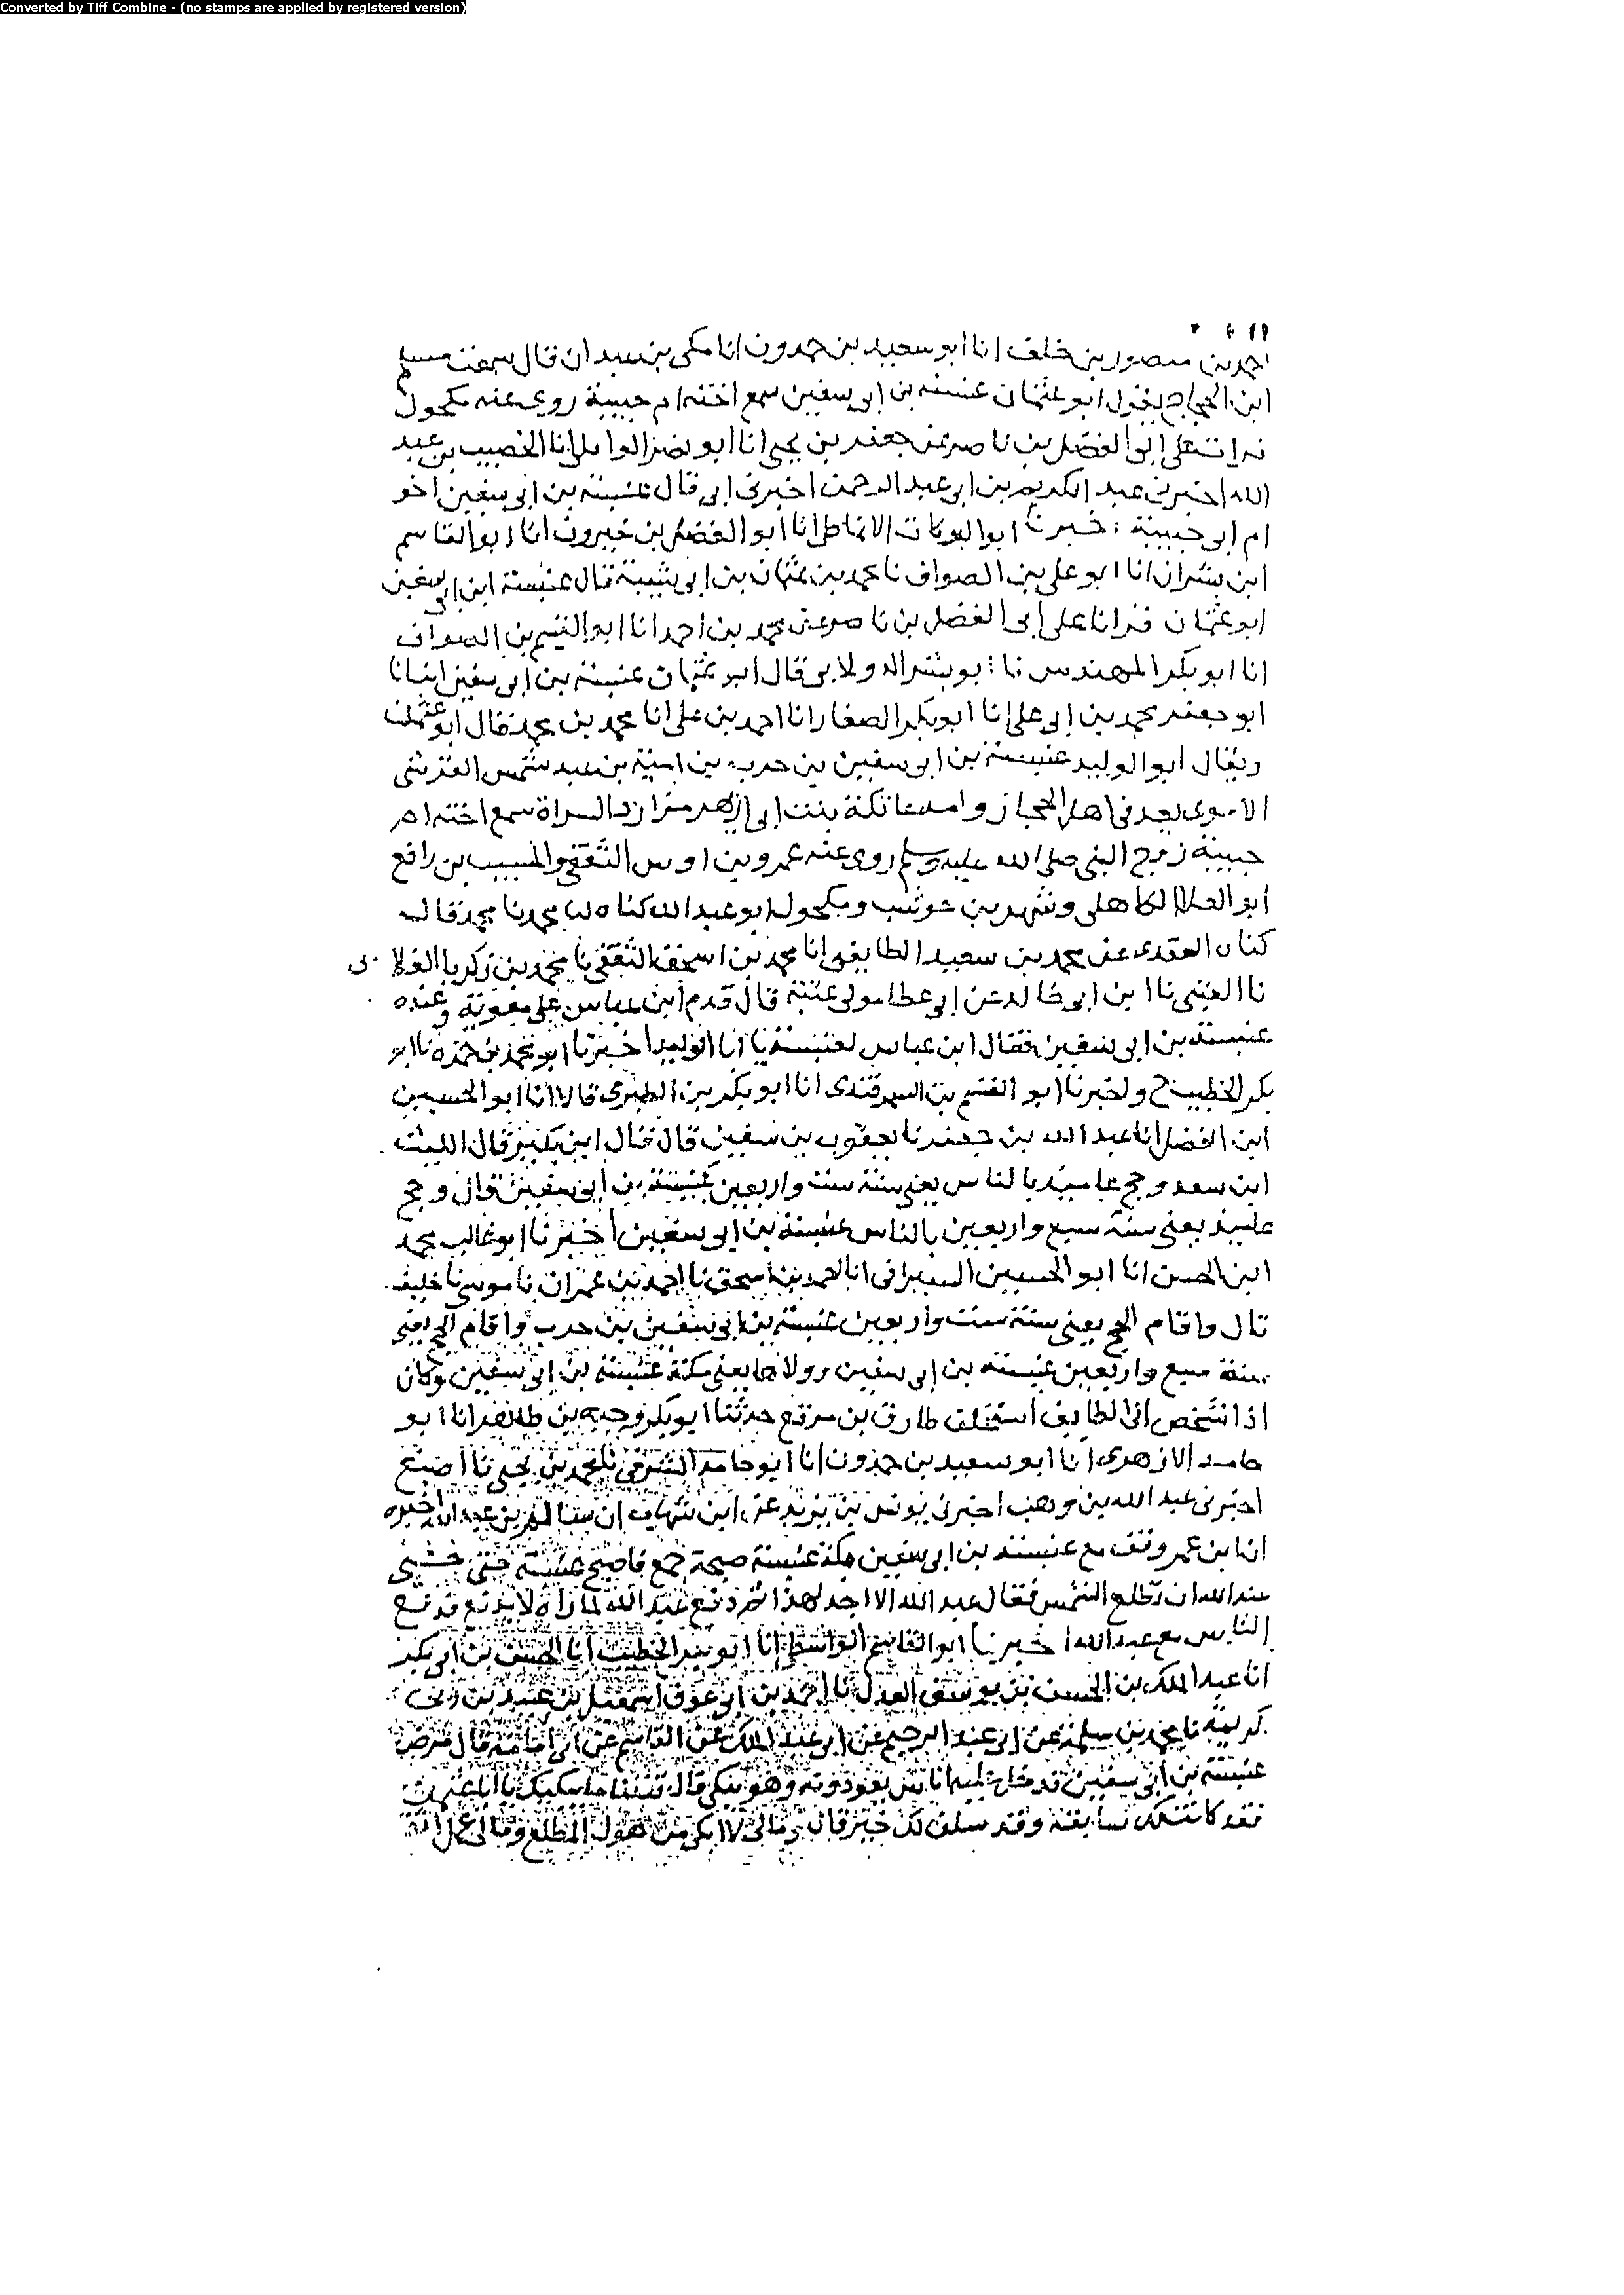 Converted by Tiff Combine - (no stamps are applied by registered version)
احمد بن منصور بن خلف انا ابو سعيد بن حمدون انا مكى بن عبدان قال سمعت مسلم
ابن الحجاج يقول ابو عثمان عنبسه بن ابى سفين سمع اخته ام حبيبة روى عنه مكحول
قرات على ابى الفضل بن ناصر عن جعفر بن يحيى انا ابو نصر الوايلى انا الخصيب بن عبد
الله اخبرنى عبد الكريم بن ابى عبد الرحمن اخبرنى ابى قال عنبسة بن ابى سفين اخو
ام ابى حبيبة اخبرنا ابو البركات الانماطى انا ابو الفضل بن خيرون انا ابو القاسم
ابن بشران انا ابو على بن الصواف نا محمد بن عثمان بن ابى شيبة قال عنبسة ابن ابى سفين
ابو عثمان قرانا على ابى الفضل بن ناصر عن محمد بن احمد انا ابو القسم بن الصواف
انا ابو بكر المهندس نا ابو بشر الدولابى قال ابو عثمان عنبسة بن ابى سفين انبانا
ابو جعفر محمد بن ابى على انا ابو بكر الصفار انا احمد بن على انا محمد بن محمد قال ابو عثمان
ويقال ابو الوليد عنبسة بن ابى سفين بن حرب بن امية بن عبد شمس القرشى
الاموى يعد فى اهل الحجاز وامه عاتكة بنت ابى ازيهر من ازد السراة سمع اخته ام
حبيبة زوج النبى صلى الله عليه وسلم روى عنه عمرو بن اوس الثقفى والمسيب بن رافع
ابو العلا الكاهلى وشهر بن حوشب ومكحول ابو عبد الله كناه لنا محمد نا محمد قال
كناه العقدى عن محمد بن سعيد الطايفى انا محمد بن اسحق الثقفى نا محمد بن زكريا الغلابى
نا العتبى نا ابن ابى خالد عن ابى عطا مولى عتبة قال قدم ابن عباس على معوية وعنده
عنبسة بن ابى سفين فقال ابن عباس لعنبسة يا ابا الوليد اخبرنا ابو محمد بن حمزه نا ابو
بكر الخطيب ح واخبرنا ابو القسم بن السمرقندى انا ابو بكر بن الطبرى قالا انا ابو الحسين
ابن الفضل انا عبد الله بن جعفر نا يعقوب بن سفين قال قال ابن بكير قال الليث
ابن سعد وحج عاميذ بالناس يعنى سنة ست واربعين عنبسة بن ابى سفين قال وحج
عاميذ يعنى سنة سبع واربعين بالناس عنبسة بن ابى سفين اخبرنا ابو غالب محمد
ابن الحسن انا ابو الحسين السيرافى انا احمد بن اسحق نا احمد بن عمران نا موسى نا خليفة
قال واقام الحج يعنى سنة ست واربعين عنبسة بن ابى سفين بن حرب واقام الحج يعنى
سنة سبع واربعين عنبسة بن ابى سفين وولاها يعنى مكة عنبسة بن ابى سفين وكان
اذا شخص الى الطايف استخلف طارق بن مرقع حدثنا ابو بكر وجيه بن طاهر انا ابو
حامد الازهرى انا ابو سعيد بن حمدون انا ابو حامد الشرقى نا محمد بن يحيى نا اصبغ
اخبرنى عبد الله بن وهب اخبرنى يونس بن يزيد عن ابن شهاب ان سالم بن عبد الله اخبره
ان ابن عمر وقف مع عنبسة بن ابى سفين بمكة عنبسة صبيحة جمع فاصبح عنبسة حتى خشى
عبد الله ان تطلع الشمس فقال عبد الله الا احد لهذا ثم دفع عبد الله لما راه لا يدفع فدفع
الناس مع عبد الله اخبرنا ابو القاسم الواسطى انا ابو بكر الخطيب انا الحسن بن ابى بكر
انا عبد الملك بن الحسن بن يوسف العدل نا احمد بن ابى عوف اسمعيل بن عبيد بن ابى
كريمة نا محمد بن سلمة عن ابى عبد الرحيم عن ابى عبد الملك عن القاسم عن ابى امامة قال مرض
عنبسة بن ابى سفين فدخل عليه اناس يعودونه وهو يبكى قال فقلنا ما يبكيك يا ابا عثمان
فقد كانت لك سابقة وقد سلف لك خير قال ومالى لا ابكى من هول المطلع وما لى عمل اثق